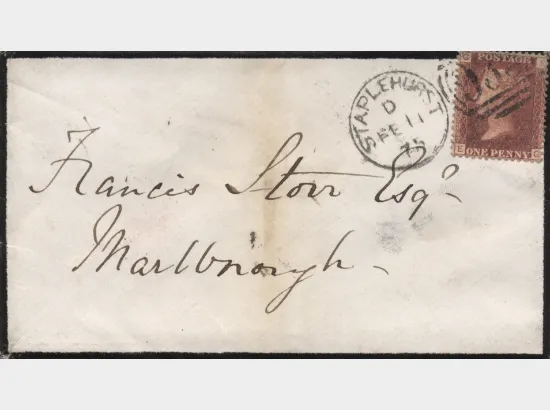 STAPLEHURST
D
FE 11
75
POSTAGE
ONE PENNY
Francis Storr Esqr.
Marlborough